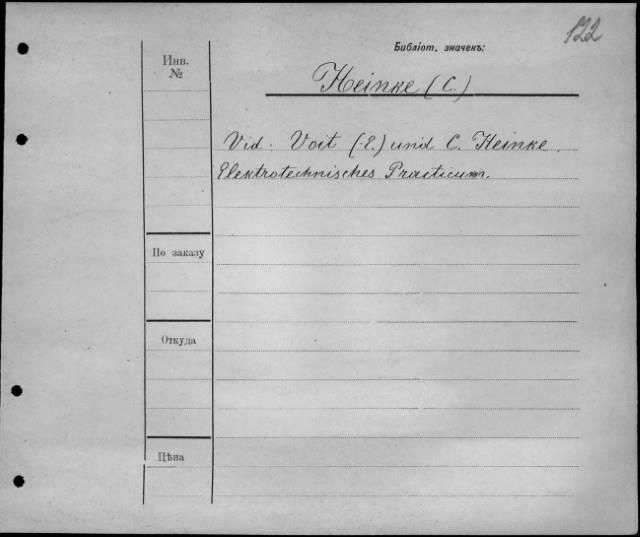 122
Библіот. значекъ:
Инв.
№
Heinke (C.)
Vid. Voit (E.) und C. Heinke.
Elektrotechnisches Practicum.
По заказу
Откуда
Цѣна